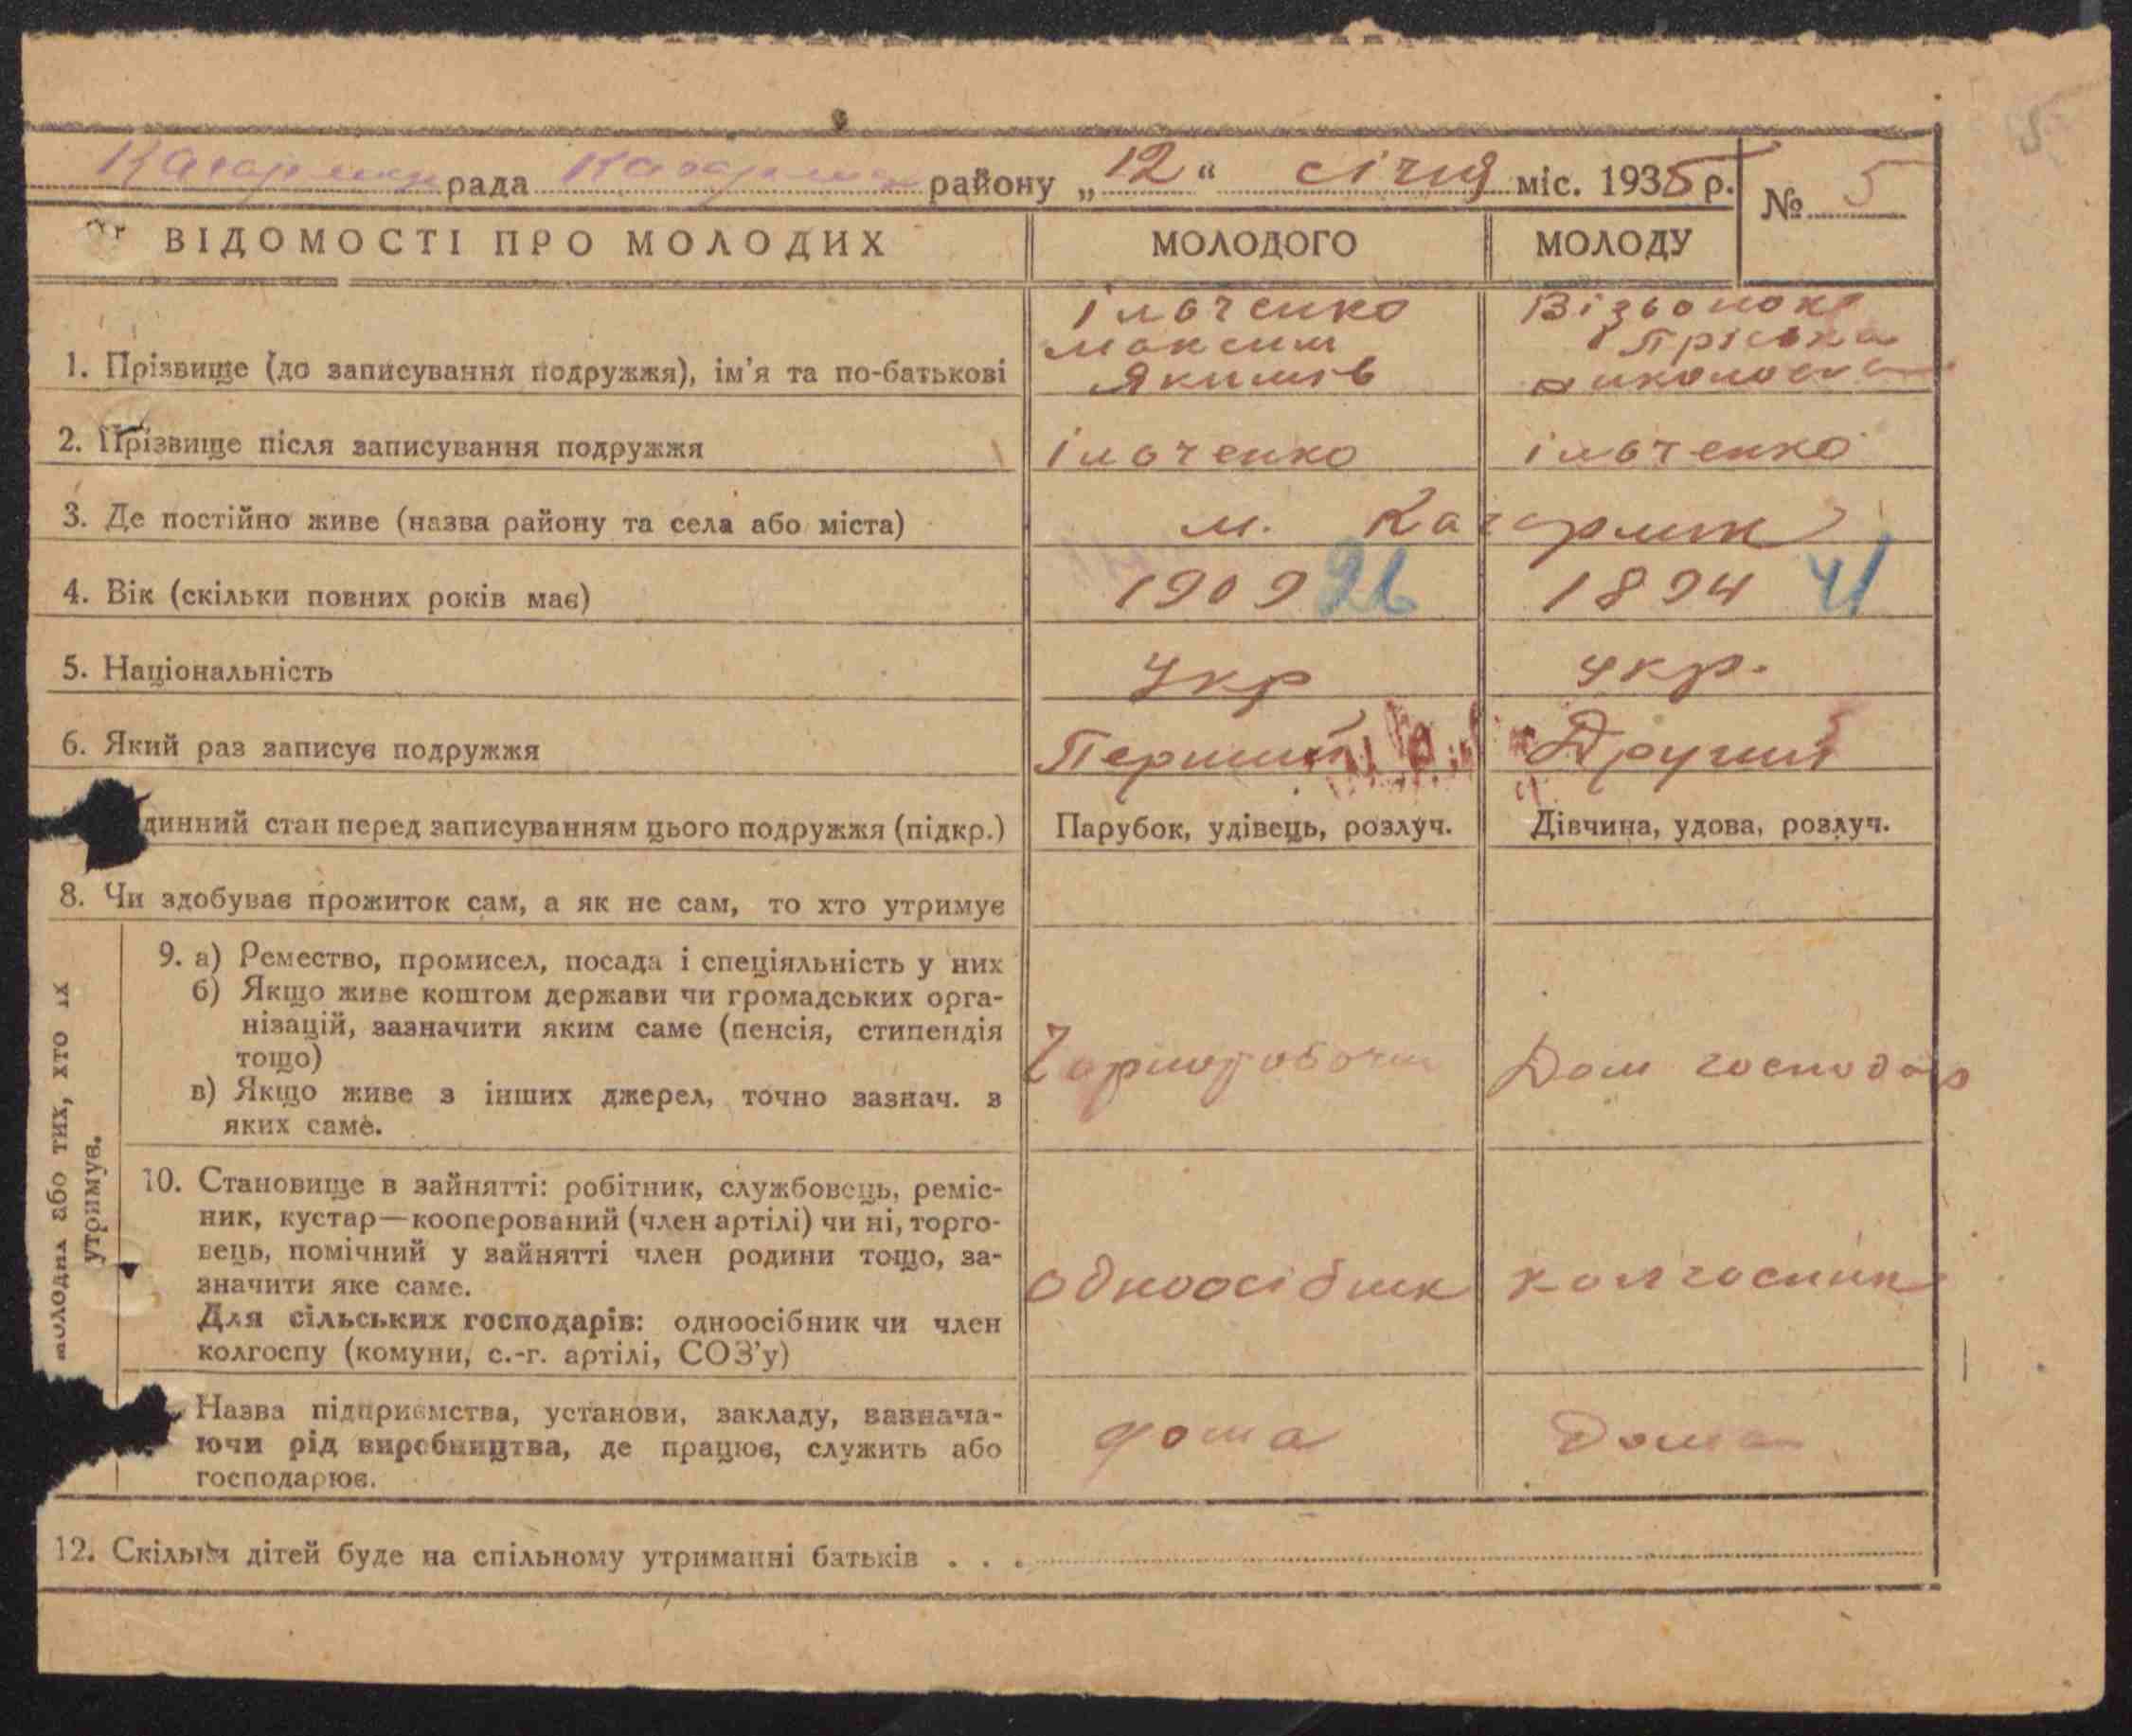 Кагарлик рада Кагарлик району „12“ січня міс. 1935 р. № 5
5
ВІДОМОСТІ ПРО МОЛОДИХ МОЛОДОГО МОЛОДУ
Ільченко
Максим
Якимів
Пріська
1. Прізвище (до записування подружжя), ім’я та по-батькові
2. Прізвище після записування подружжя ільченко ільченко
3. Де постійно живе (назва району та села або міста) м. Кагарлик
4. Вік (скільки повних років має) 1909 26 1894 41
5. Національність Укр укр.
6. Який раз записує подружжя Перший Другий
динний стан перед записуванням цього подружжя (підкр.) Парубок, удівець, розлуч. Дівчина, удова, розлуч.
8. Чи здобуває прожиток сам, а як не сам, то хто утримує
молодий або тих, хто їх
утримує.
9. а) Ремество, промисел, посада і спеціяльність у них
б) Якщо живе коштом держави чи громадських орга-
нізацій, зазначити яким саме (пенсія, стипендія
тощо)
Чорноробочи Дом господар
в) Якщо живе з інших джерел, точно зазнач. з
яких саме.
10. Становище в зайнятті: робітник, службовець, реміс-
ник, кустар—кооперований (член артілі) чи ні, торго-
вець, помічний у зайнятті член родини тощо, за-
значити яке саме.
одноосібник колгоспник
Для сільських господарів: одноосібник чи член
колгоспу (комуни, с.-г. артілі, СОЗ’у)
Назва підприємства, установи, закладу, зазнача-
ючи рід виробництва, де працює, служить або
господарює.
дома Дома
12. Скільки дітей буде на спільному утриманні батьків . . .